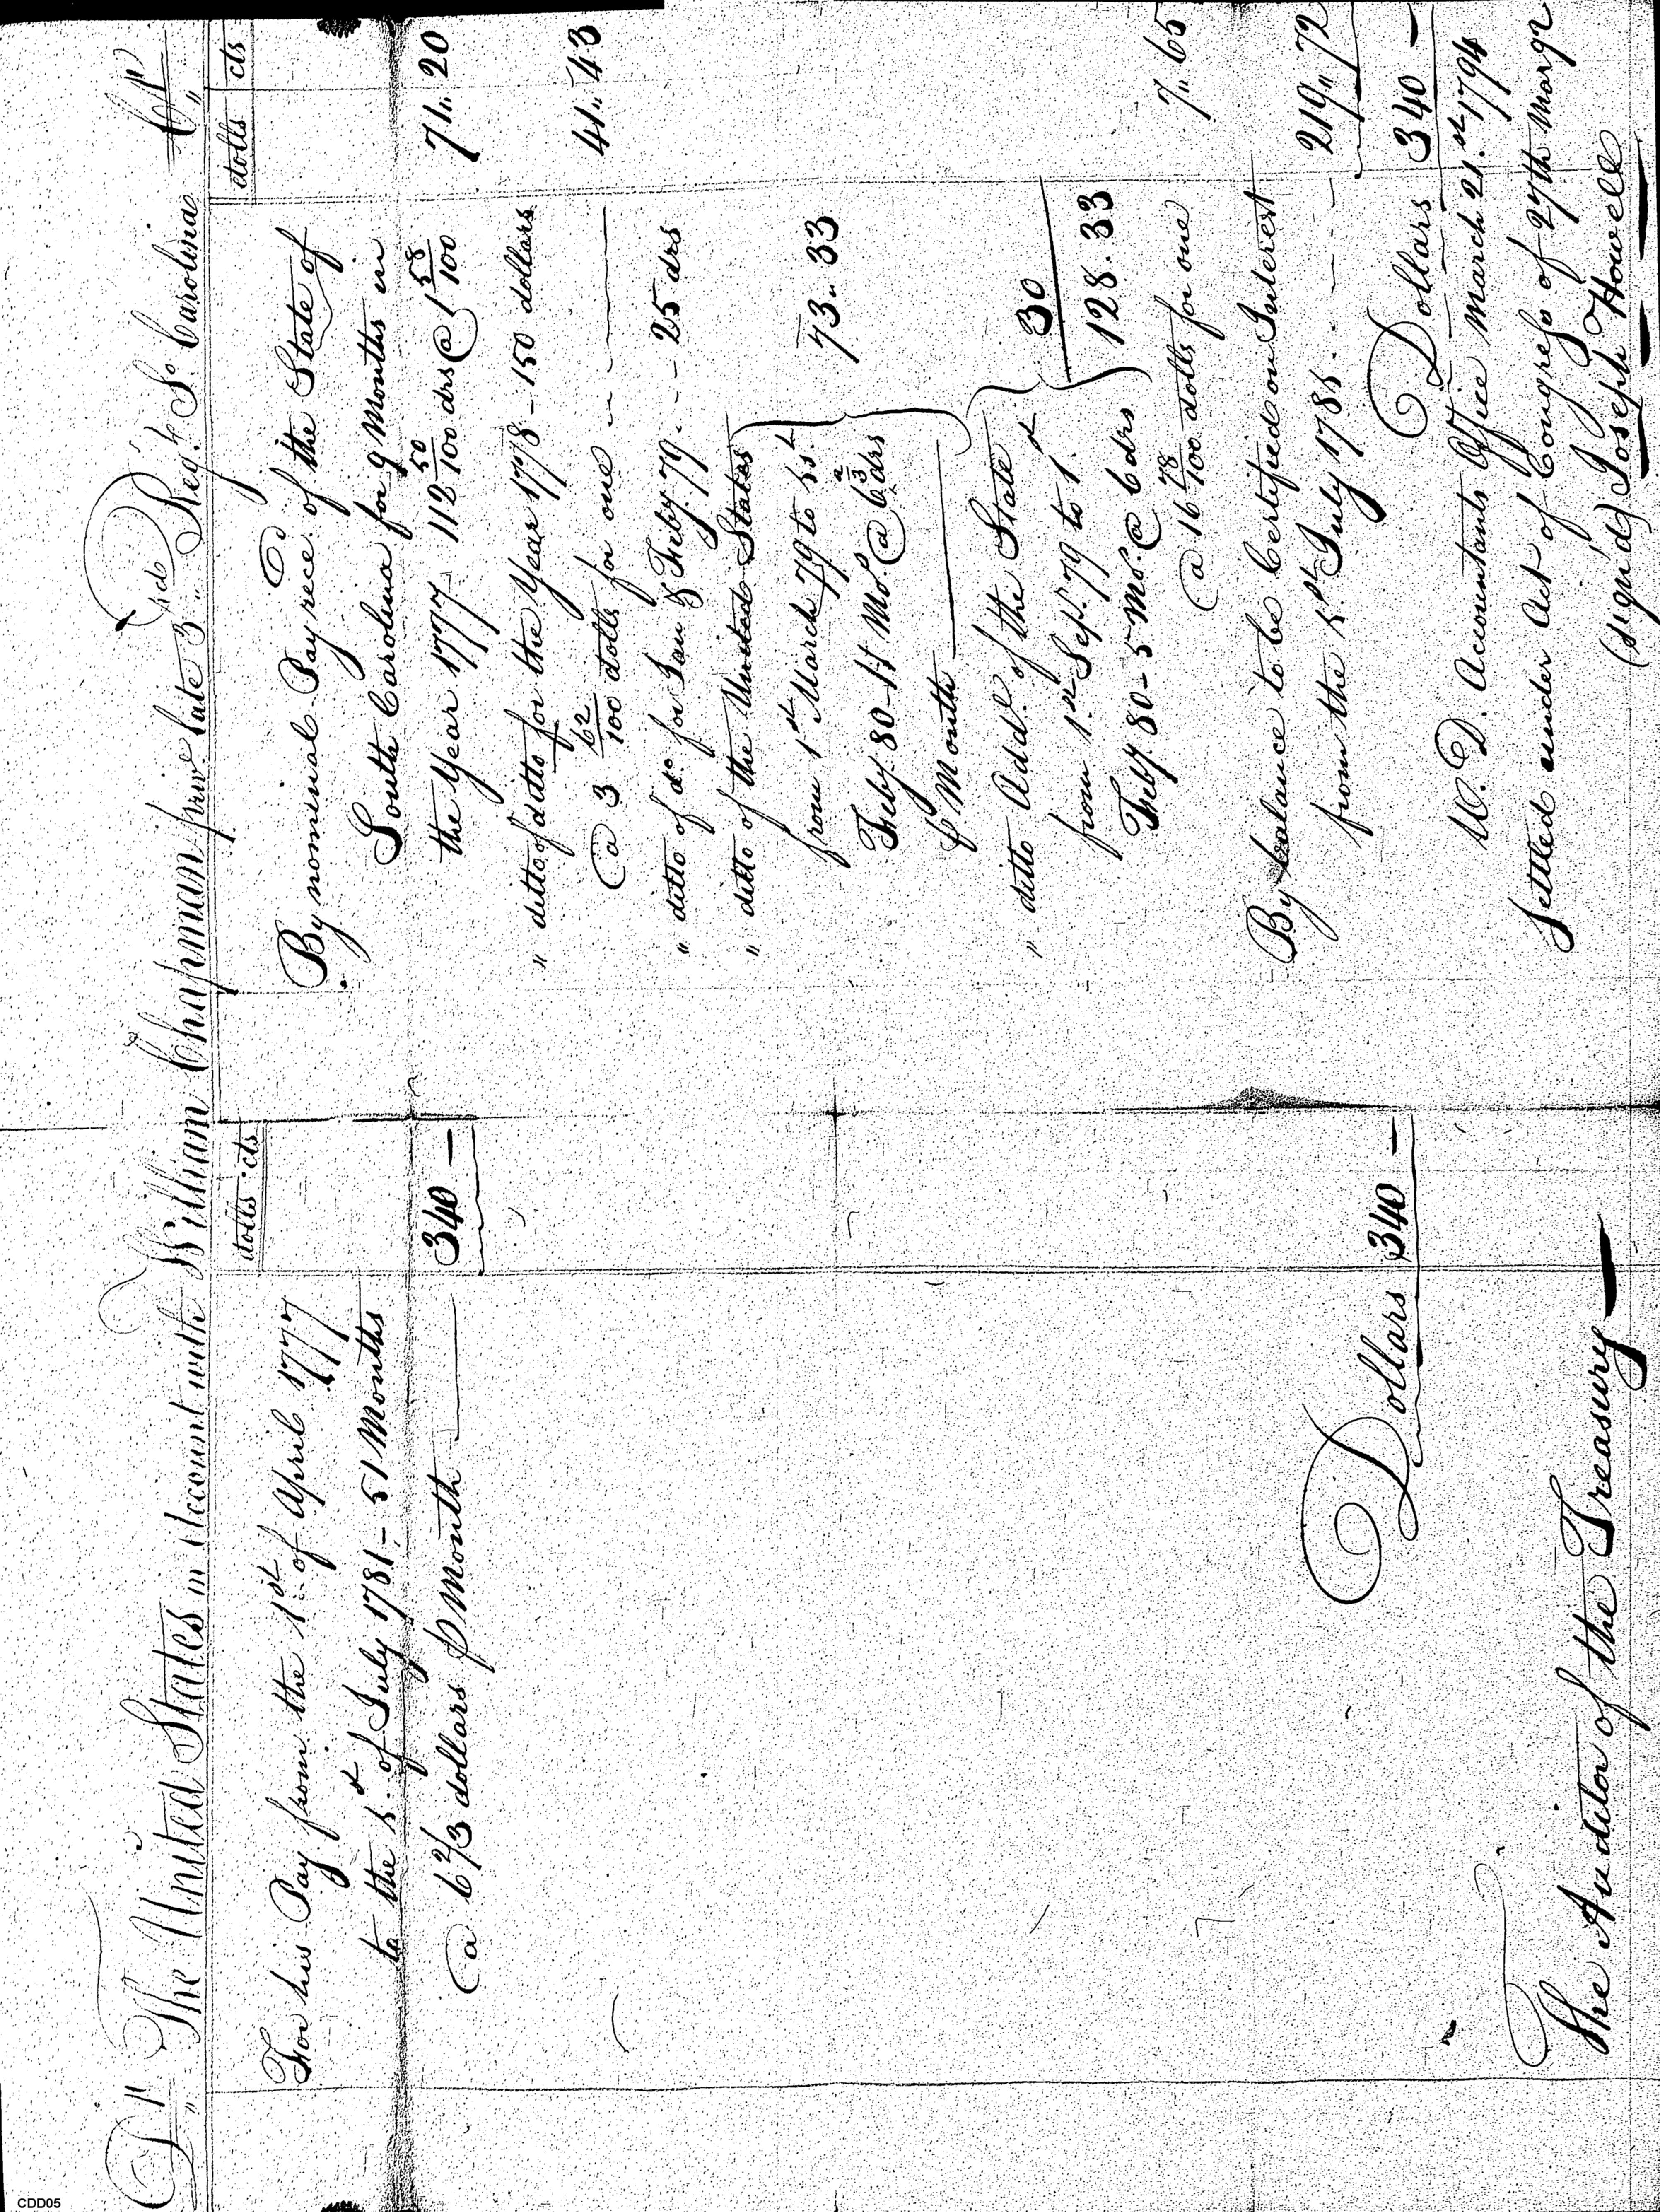 Dr The United States in Account with William Chapman priv. late 3rd Regt So. Carolina Cr
dolls cts
For his Pay from the 1st of April 1777
to the 1st of July 1781 - 51 Months
@ 6 2/3 dollars p Month 340 -
Dollars 340 -
The Auditor of the Treasury
dolls cts
By nominal Pay recd. of the State of
South Carolina for 9 Months in
the Year 1777 112 50/100 drs @ 1 58/100 71.. 20
" ditto of ditto for the Year 1778 - 150 dollars
@ 3 62/100 dolls for one 41.. 43
" ditto of do. for Jan & Feby. 79 - - 25 drs
" ditto of the United States
from 1st March 79 to 1st
Feby. 80 - 11 Mo. @ 6 2/3 drs 73.. 33
p Month
" ditto Addl. of the State
from 1st Sept. 79 to 1st 30
Feby. 80 - 5 Mo. @ 6 drs 128. 33
@ 16 78/100 dolls for one 7.. 65
By balance to be Certified on Interest
from the 1st July 1781 - - - 219.. 72
Dollars 340 -
W. D. Accountants Office March 21.st 1794
Settled under Act of Congress of 27th Mar 92
(sign'd) Joseph Howell
CDD05